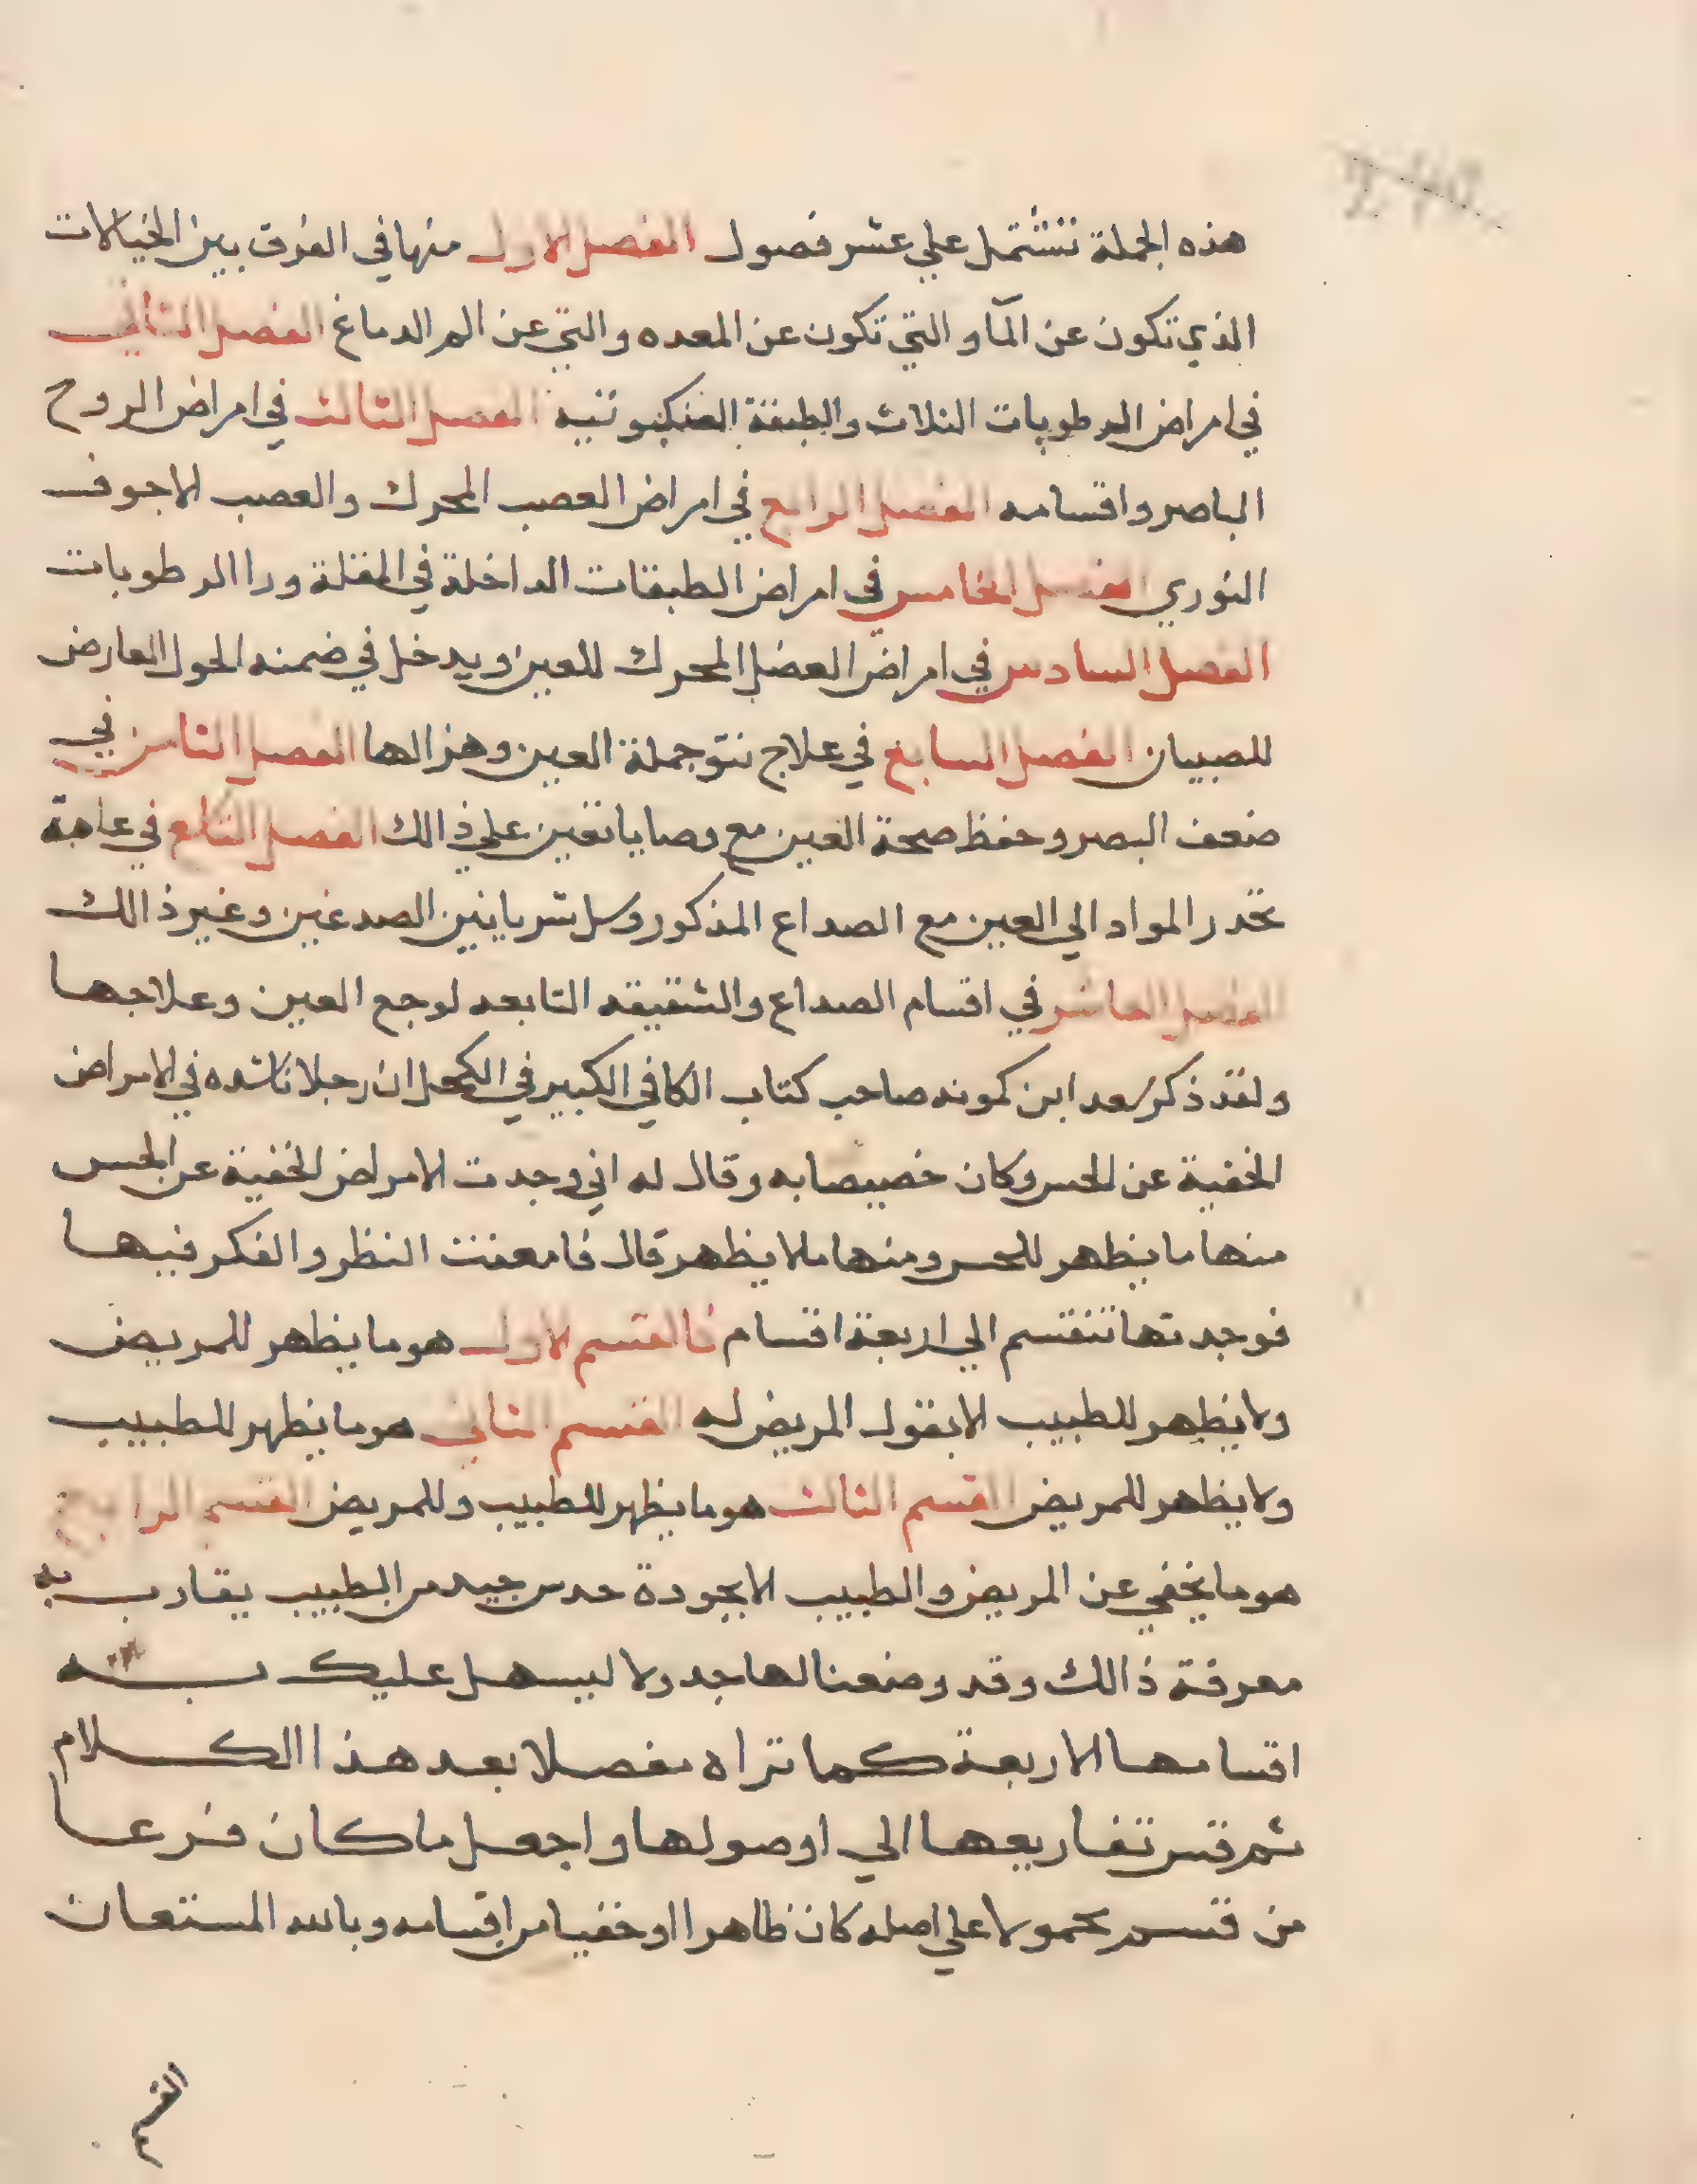 هذه الجملة تشتمل علي عشر فصول الفصل الاول منها في الفرق بين الخيالات
الذي تكون عن المآ والتي تكون عن المعده والتي عن الم الدماغ الفصل الثاني
في امراض الرطوبات الثلاث والطبقة العنكبوتيه الفصل الثالث في امراض الروح
الباصر واقسامه الفصل الرابع في امراض العصب المحرك والعصب الاجوف
النوري الفصل الخامس في امراض الطبقات الداخلة في المقلة ورا الرطوبات
الفصل السادس في امراض العضل المحرك للعين ويدخل في ضمنه الحول العارض
للصبيان الفصل السابع في علاج نتو جملة العين وهزالها الفصل الثامن في
ضعف البصر وحفظ صحة العين مع وصايا تعين علي ذالك الفصل التاسع في
تحدر المواد الي العين مع الصداع المذكور وسل شريانين الصدغين وغير ذالك
الفصل العاشر في اقسام الصداع والشقيقه التابعه لوجع العين وعلاجها
ولقد ذكر ابن كمونه صاحب كتاب الكافي الكبير في الكحل ان رجلا ناشده في الامراض
الخفية عن الحس وكان خصيصا به وقال له اني وجدت الامراض الخفية عن الحس
منها ما يظهر للحس ومنها ملا يظهر قال فامعنت النظر والفكر فيها
فوجدتها تنقسم الي اربعة اقسام فالقسم الاول هو ما يظهر للمريض
ولا يظهر للطبيب الا بقول المريض له القسم الثاني هو ما يظهر للطبيب
ولا يظهر للمريض القسم الثالث هو ما يظهر للطبيب وللمريض القسم الرابع
هو ما يخفي عن المريض والطبيب الا بجودة حدس جيد من الطبيب يقارب به
معرفة ذالك وقد وضعنا لها جدولا ليسهل عليك به
اقسامها الاربعة كما تراه مفصلا بعد هذا الكلام
ثم قس تفاريعها الي اوصولها واجعل ما كان فرعا
من قسم محمولا علي اصله كان ظاهرا او خفيا من اقسامه وبالله المستعان
القسم